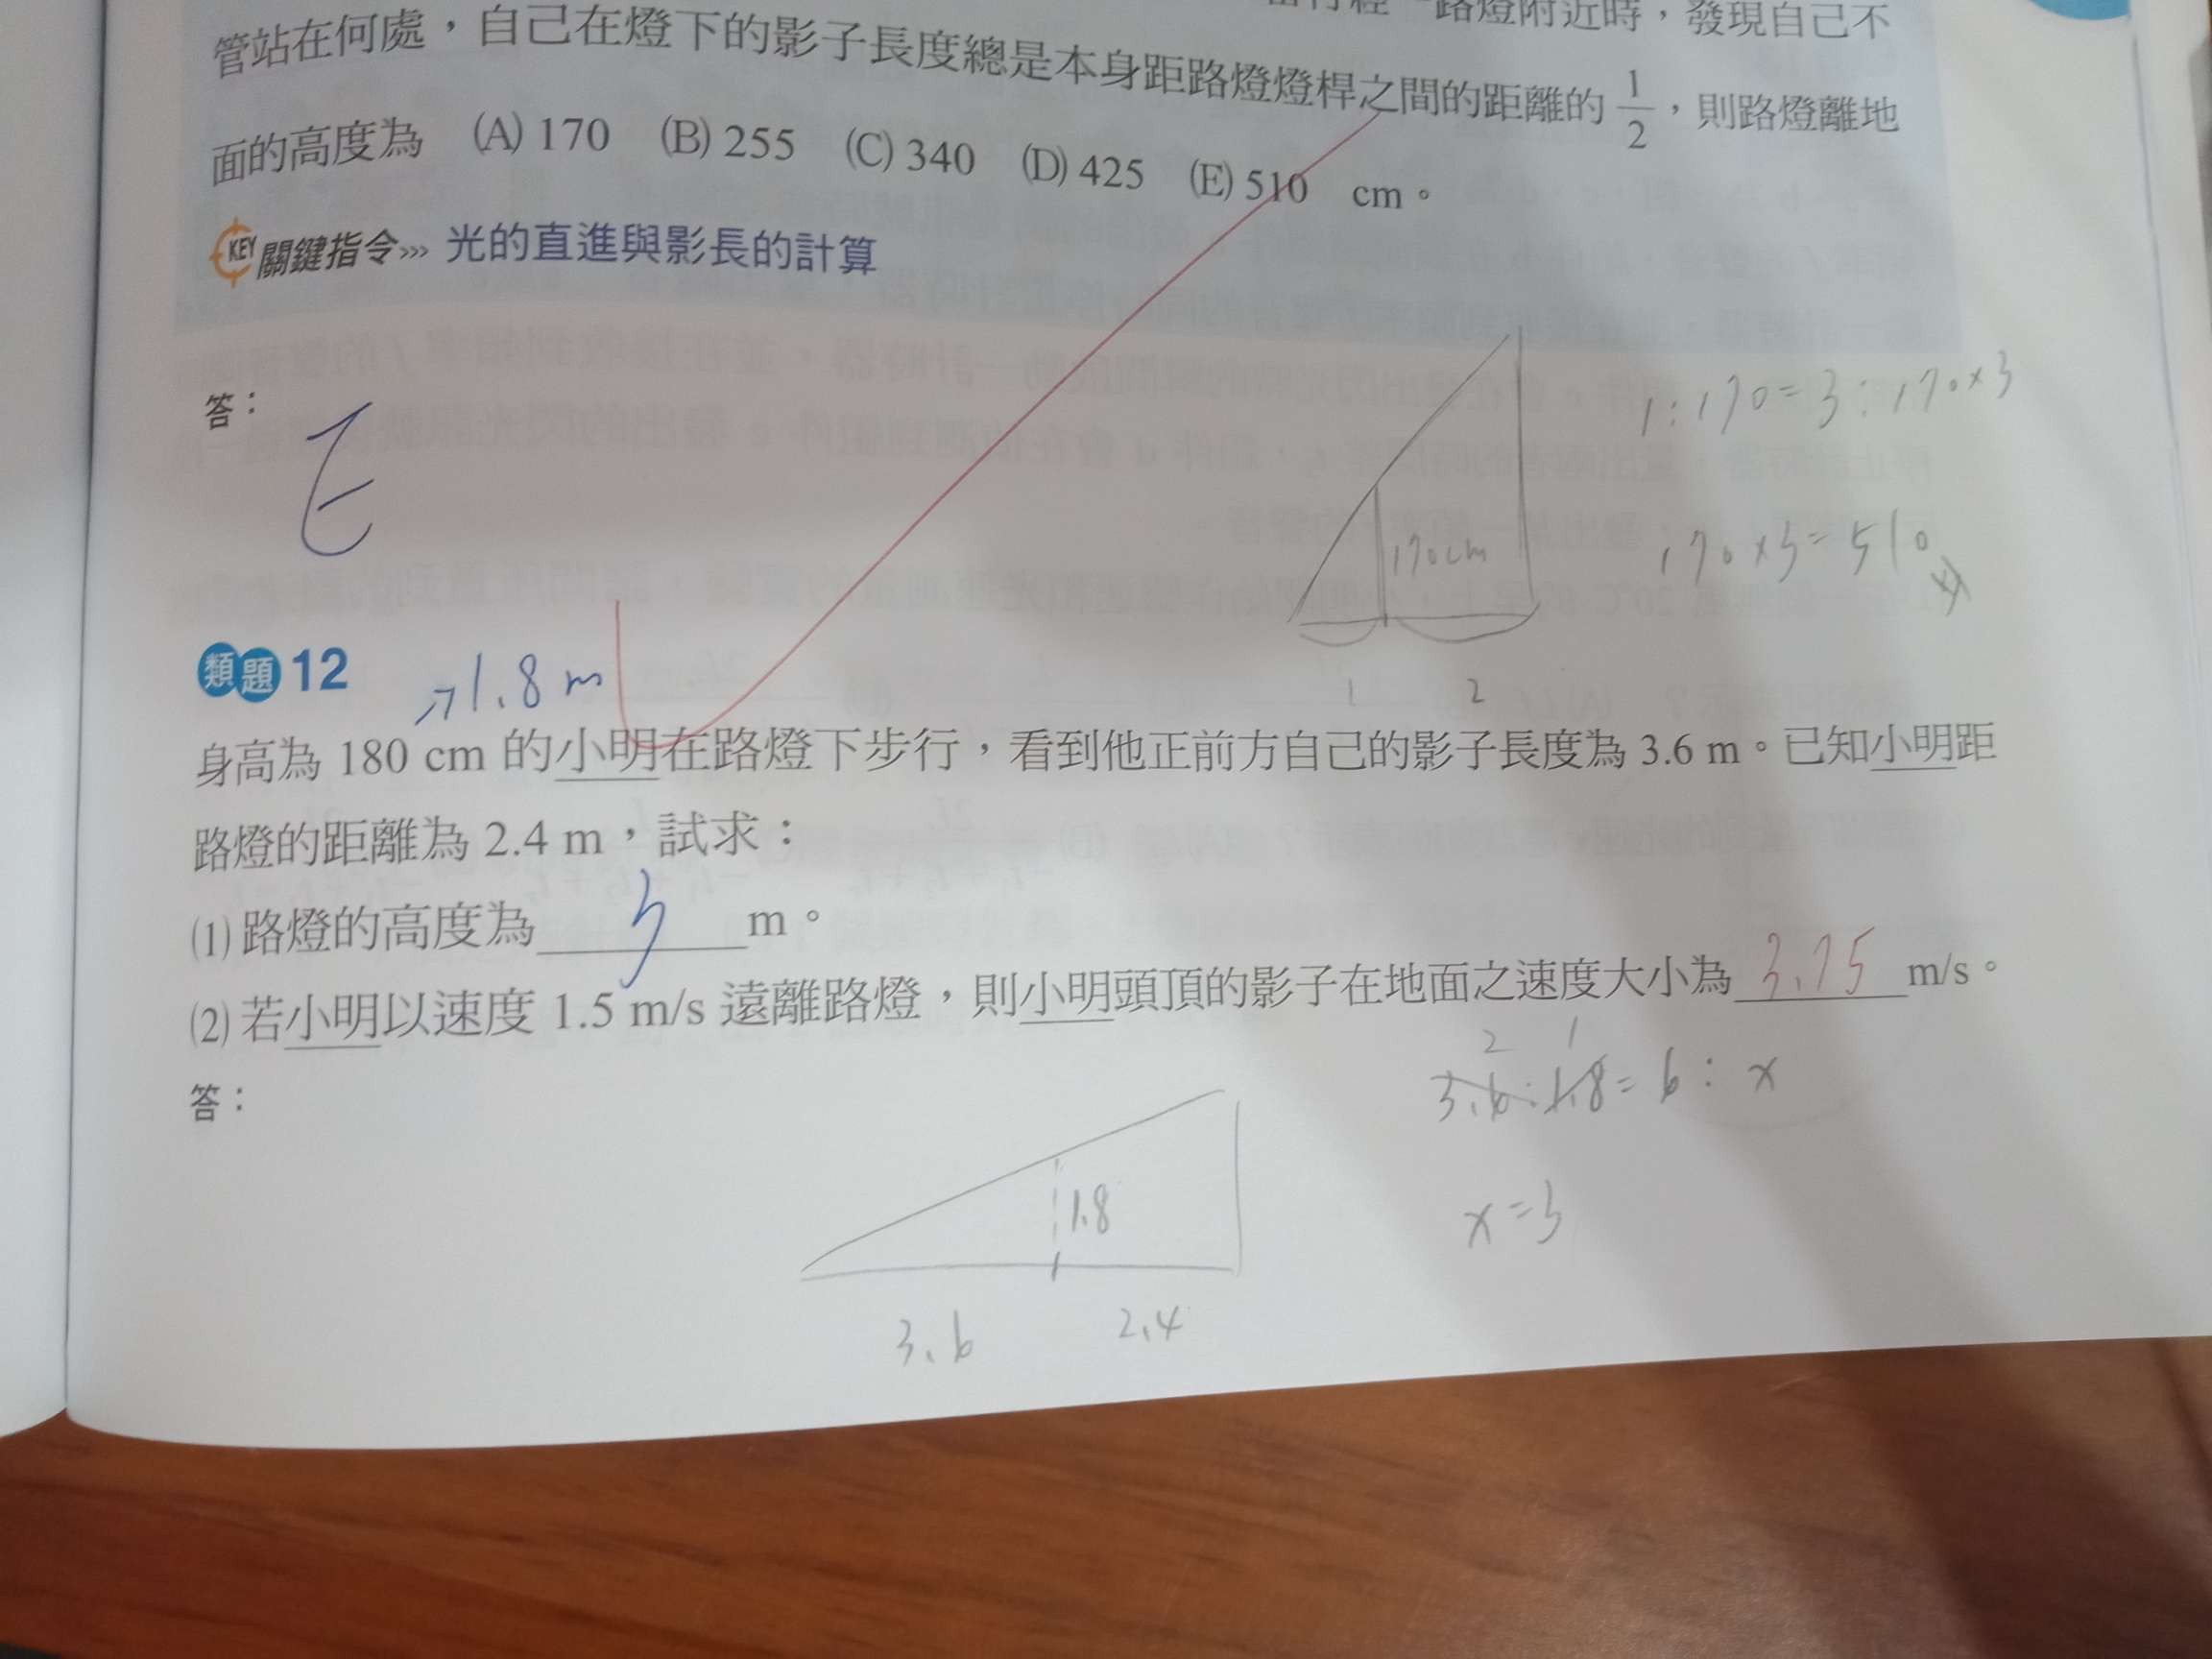 路燈附近時，發現自己不
管站在何處，自己在燈下的影子長度總是本身距路燈燈桿之間的距離的 1/2，則路燈離地
面的高度為 (A) 170 (B) 255 (C) 340 (D) 425 (E) 510 cm。
KEY 關鍵指令>>> 光的直進與影長的計算
答：
E
1:170=3:170×3
170cm
170×3=510
1 2
類題 12
→1.8m
身高為 180 cm 的小明在路燈下步行，看到他正前方自己的影子長度為 3.6 m。已知小明距
路燈的距離為 2.4 m，試求：
(1) 路燈的高度為 3 m。
(2) 若小明以速度 1.5 m/s 遠離路燈，則小明頭頂的影子在地面之速度大小為 3.75 m/s。
答：
2 1
3.6:1.8=6:x
1.8
x=3
3.6 2.4